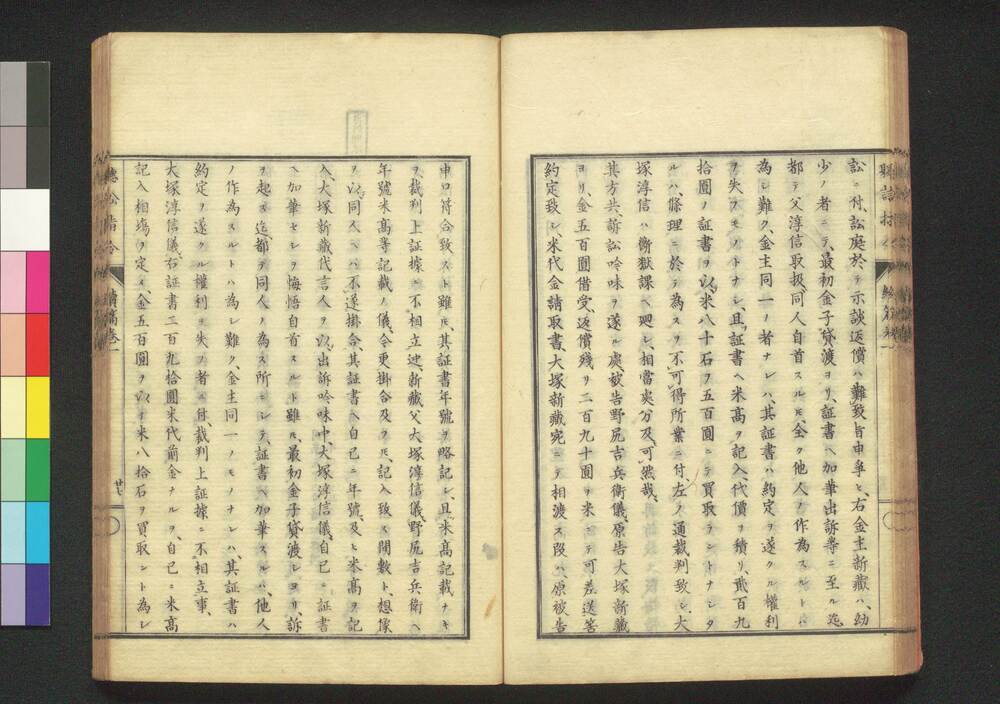 訟ニ付、訟庭於テ示談返償ハ難致旨申爭ヒ、右金主新藏ハ、幼
少ノ者ニテ、最初金子貸渡ヨリ、証書ヘ加筆出訴等ニ至ル迄、
都テ父淳信取扱、同人自首スルトモ全ク他人ノ作為スルトハ
為シ難ク、金主同一ノ者ナレハ、其証書ハ約定ヲ遂クル權利
ヲ失フモノトナシ、且、証書ヘ米高ヲ記入、代價ヲ積リ、貳百九
拾圓ノ証書ヲ以、米八十石ヲ五百圓ニテ買取ラントナシタ
ルハ、條理ニ於テ為ス可ラ不可得所業ニ付、左ノ通裁判致シ、大
塚淳信ハ断獄課ヘ廻シ、相當處分及可然哉、
其方共、訴訟吟味ヲ遂ル處、被告野尻吉兵衛儀、原告大塚新藏
ヨリ、金五百圓借受、返償殘リ二百九十圓ヲ米ニテ可差送筈
約定致シ、米代金請取書、大塚新藏宛ニテ相渡ス段ハ、原被告
聴訟指令
續篇巻一
申口符合致ストト雖モ、其証書年號ヲ略記シ、且、米高記載ナキ
ヲ、裁判上証據ニ不相立迚、新藏父大塚淳信儀、野尻吉兵衛ヘ
年號米高等記載ノ儀、今更掛合及フトモ、記入致ス間敷ト、想像
ヲ以、同人ヘハ不遂掛合、其証書ヘ自己ニ年號、及ヒ米高ヲ記
入、大塚新藏代言人ヲ以、出訴吟味中、大塚淳信儀、自己ニ証書
ヘ加筆セシヲ悔悟自首スルト雖モ、最初金子貸渡シヨリ、訴
ヲ起ス迄、都テ同人ノ為ス所ニシテ、証書ヘ加筆スルハ、他人
ノ作為スルトハ為シ難ク、金主同一ノモノナレハ、其証書ハ
約定ヲ遂クル權利ヲ失フ者ニ付、裁判上証據ニ不相立事、
大塚淳信儀、右証書二百九拾圓米代前金ナルヲ、自己ニ米高
記入相塲ヲ定メ、金五百圓ヲ以テ米八拾石ヲ買取ント為シ
聴訟指令
續篇巻一
廿七